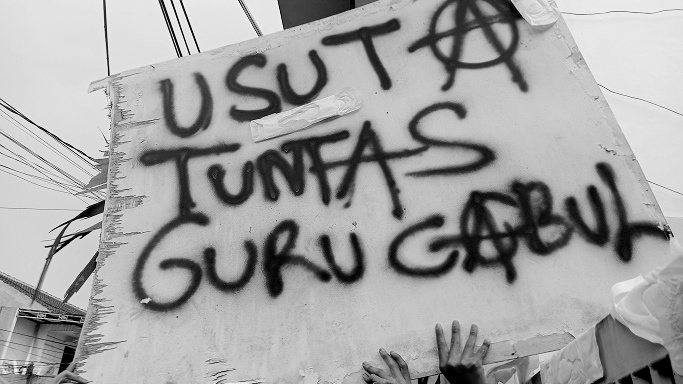 USUT Ⓐ
TUNTAS
GURU CABUL